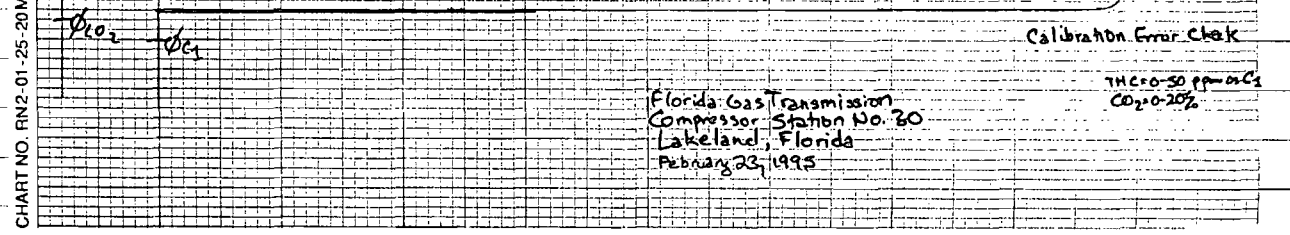 CHART NO. RN2-01-25-20M
ØCO₂
ØC₁
Calibration Error Chek
THC=0-50 ppm as C₁
CO₂=0-20%
Florida Gas Transmission
Compressor Station No. 30
Lakeland, Florida
February 23, 1995